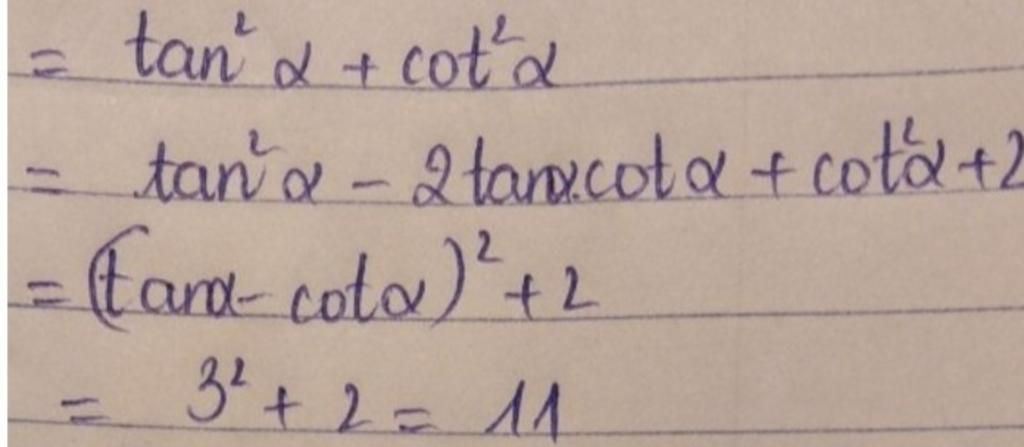 = tan²α + cot²α
= tan²α - 2tanα.cotα + cot²α + 2
= (tanα - cotα)² + 2
= 3² + 2 = 11